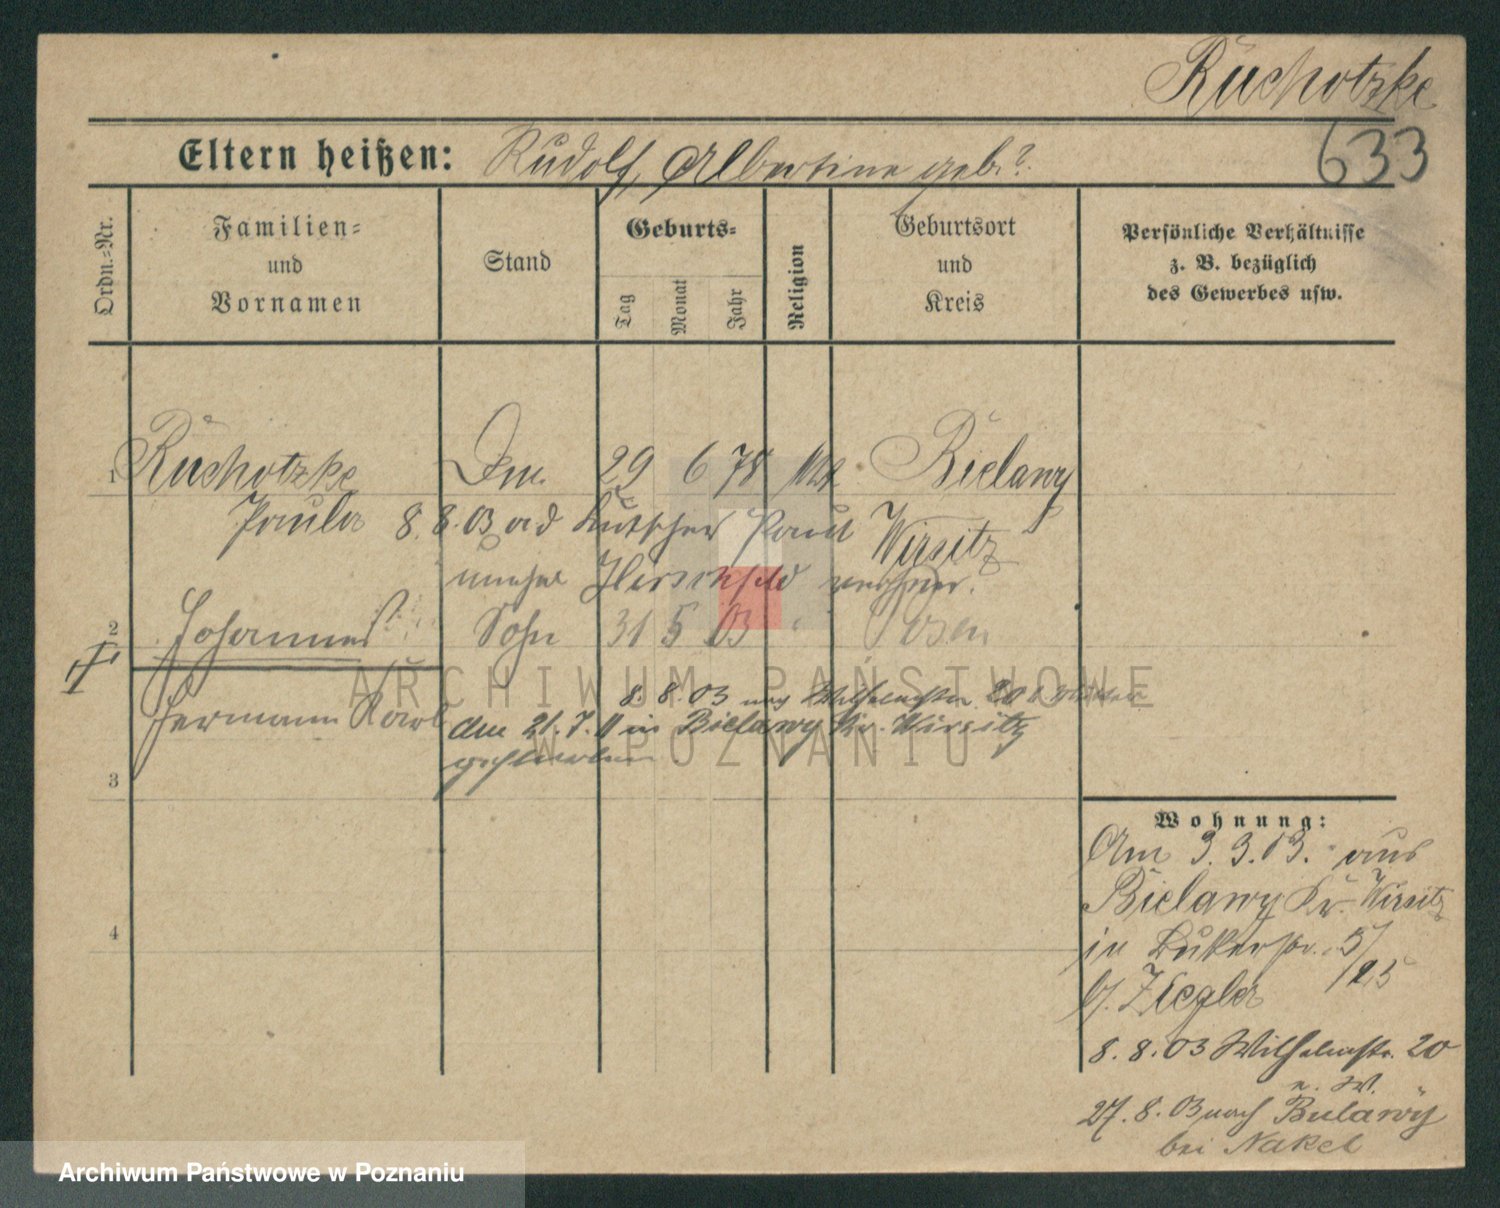 Ruchotzke
633
Eltern heißen: Rudolf, Albertine geb. ?
Ordn.-Nr.
Familien-
und
Vornamen
Stand
Geburts-
Tag
Monat
Jahr
Religion
Geburtsort
und
Kreis
Persönliche Verhältnisse
z. B. bezüglich
des Gewerbes usw.
1 Ruchotzke 29 6 78 Bielawy
Paula 8.8.03 Kutscher Paul Wirsitz
Hirschfeld
2 Johannes Sohn 31 5 03 Posen
Hermann Karl 8.8.03 Wilhelmstr. 20
am 21.7.11 in Bielawy Kr. Wirsitz
3
4
Wohnung:
Am 3.3.03. aus
Bielawy Kr. Wirsitz
in 5/
b. Ziegler
8.8.03 Wilhelmstr. 20
27.8.03 nach Bielawy
bei Nakel
ARCHIWUM PAŃSTWOWE
W POZNANIU
Archiwum Państwowe w Poznaniu